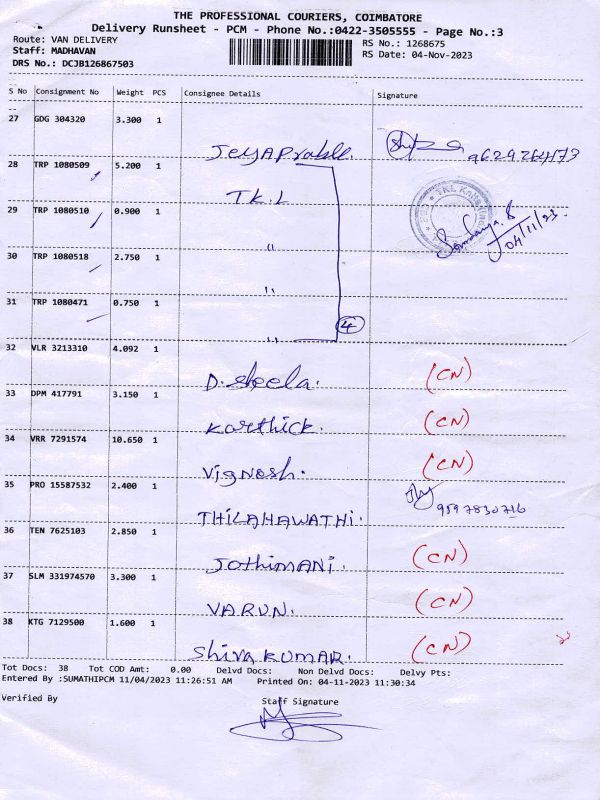 THE PROFESSIONAL COURIERS, COIMBATORE
Delivery Runsheet - PCM - Phone No.:0422-3505555 - Page No.:3
Route: VAN DELIVERY RS No.: 1268675
Staff: MADHAVAN RS Date: 04-Nov-2023
DRS No.: DCJB126867503
S No Consignment No Weight PCS Consignee Details Signature
27 GDG 304320 3.300 1
9629264173
28 TRP 1080509 5.200 1
TK.L
29 TRP 1080510 0.900 1
04/11/23.
"
30 TRP 1080518 2.750 1
"
31 TRP 1080471 0.750 1
" 4
32 VLR 3213310 4.092 1
D. Sheela. (CN)
33 DPM 417791 3.150 1
Karthick. (CN)
34 VRR 7291574 10.650 1
Vignesh. (CN)
35 PRO 15587532 2.400 1
THILAHAWATHI. 9597830716
36 TEN 7625103 2.850 1
JothiMANi. (CN)
37 SLM 331974570 3.300 1
VARUN. (CN)
38 KTG 7129500 1.600 1
Shiva KUMAR. (CN)
Tot Docs: 38 Tot COD Amt: 0.00 Delvd Docs: Non Delvd Docs: Delvy Pts:
Entered By :SUMATHIPCM 11/04/2023 11:26:51 AM Printed On: 04-11-2023 11:30:34
Verified By Staff Signature